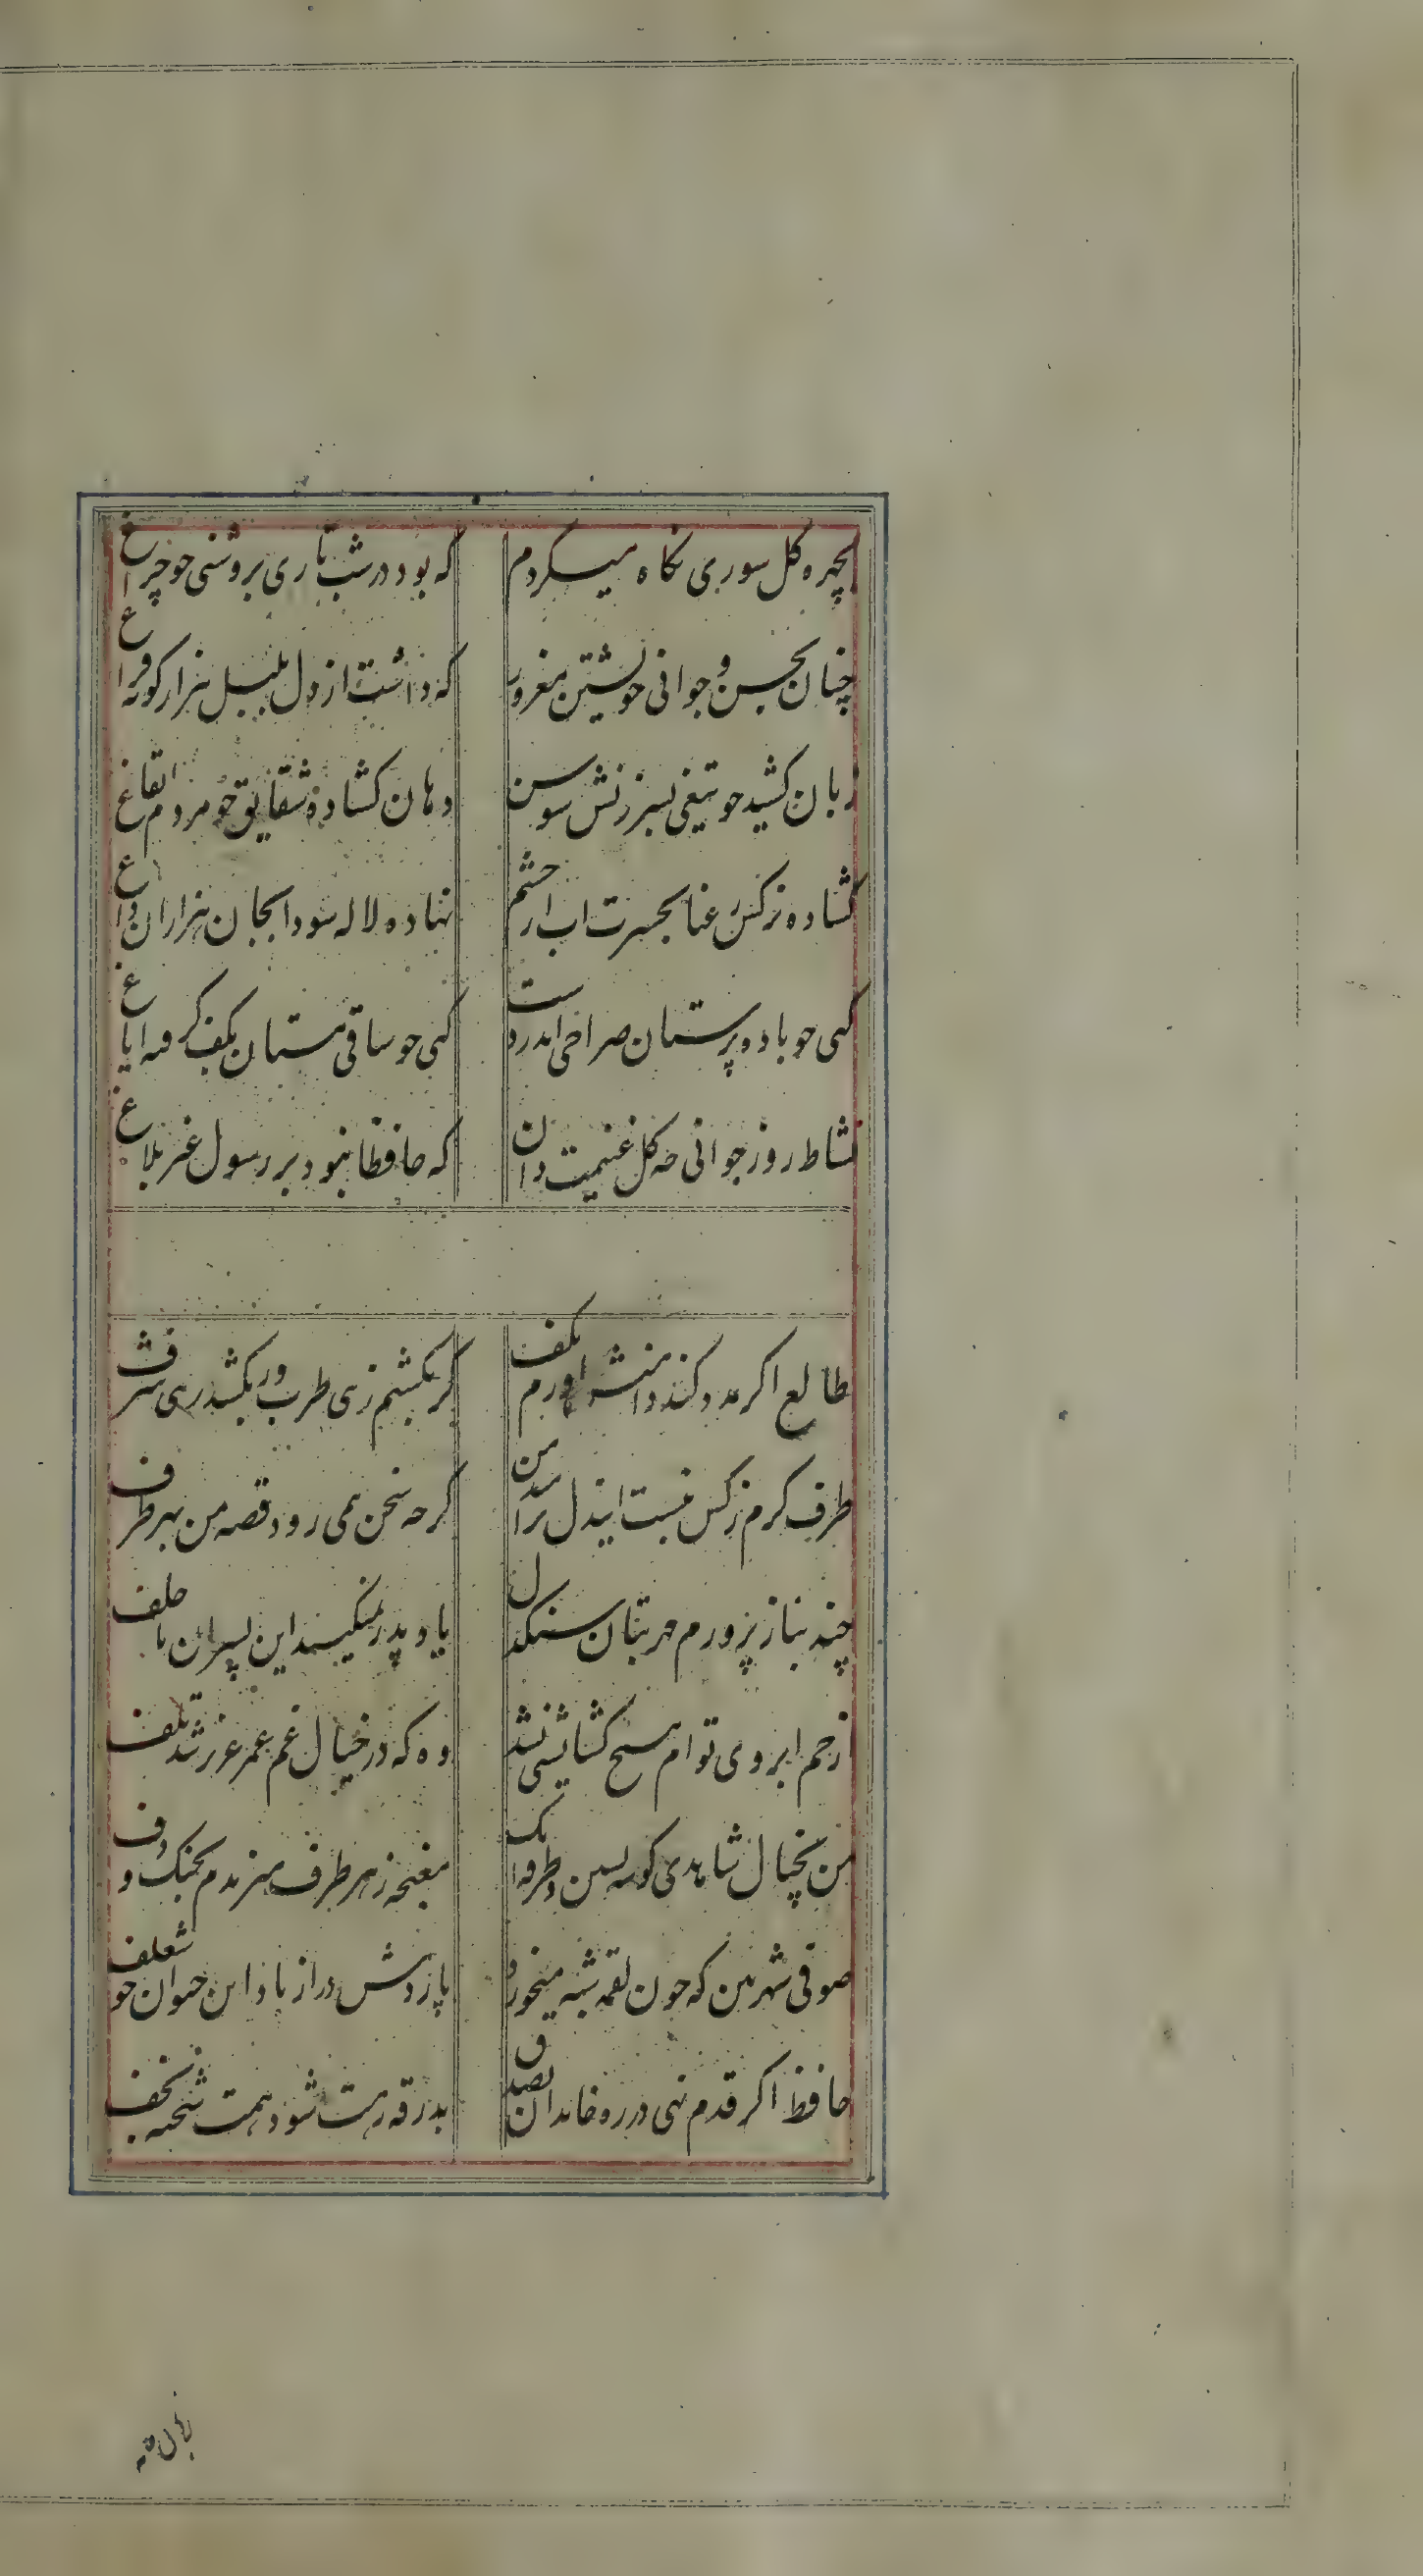 بچهره کل سوری نکاه میکردم که بود در شب تاری بروشنی جو چراغ
چنان بحسن و جوانی خویشتن مغرور که داشت از دل بلبل هزار کونه فراغ
زبان کشید جو تیغی بسرزنش سوسن دهان کشاده شقایق جو مردم ایقاغ
کشاده نرکس رعنا بحسرت اب از جشم نهاده لاله سودا بجان هزاران داغ
کهی جو باده پرستان صراحی اندر دست کهی جو ساقی مستان بکف کرفته ایاغ
نشاط روز جوانی جه کل غنیمت دان که حافظا نبود بر رسول غیر بلاغ
طالع اکر مدد کند دامنش اورم بکف کر بکشم زهی طرب ور بکشد زهی شرف
طرف کرم زکس نبست ایندل بر امید من کرجه سخن همی رود قصه من بهر طرف
چند بناز پرورم مهر بتان سنکدل یاد پدر نمیکنند این پسران نا خلف
از خم ابروی توام هیچ کشایشی نشد وه که در خیال غم عمر عزیز شد تلف
من بخیال شاهدی کوشه نشین و طرفه انک مغبجه ز هر طرف میزندم بجنک و دف
صوفی شهر بین که جون لقمه شبه میخورد پاردمش دراز باد این حیوان جو شعلف
حافظ اکر قدم نهی در ره خاندان بصدق بدرقه رهت شود همت شحنه نجف